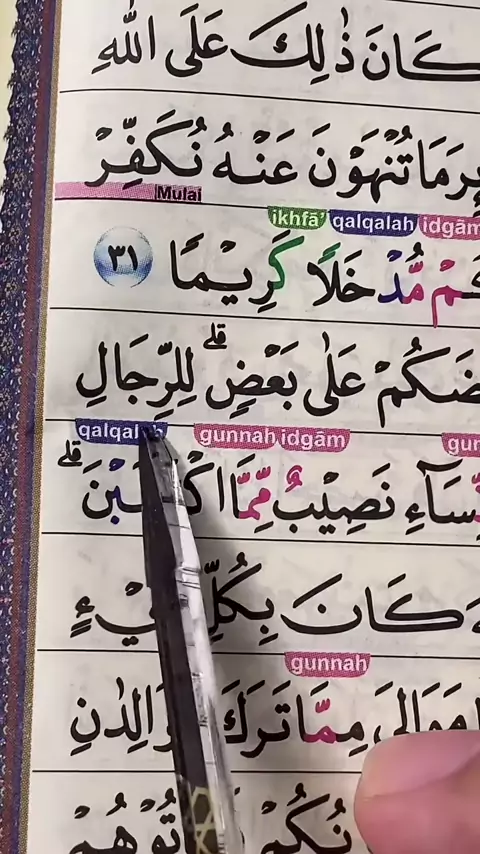 كَانَ ذٰلِكَ عَلَى اللّٰهِ
مَا تُنْهَوْنَ عَنْهُ نُكَفِّرْ
Mulai
ikhfā' qalqalah idgām
مُّدْخَلًا كَرِيْمًا ٣١
ضَكُمْ عَلٰى بَعْضٍ ۗ لِلرِّجَالِ
qalqalah gunnah idgām gun
سَاۤءِ نَصِيْبٌ مِّمَّا اكْتَسَبْنَ ۗ
كَانَ بِكُلِّ
gunnah
مَوَالِيَ مِمَّا تَرَكَ